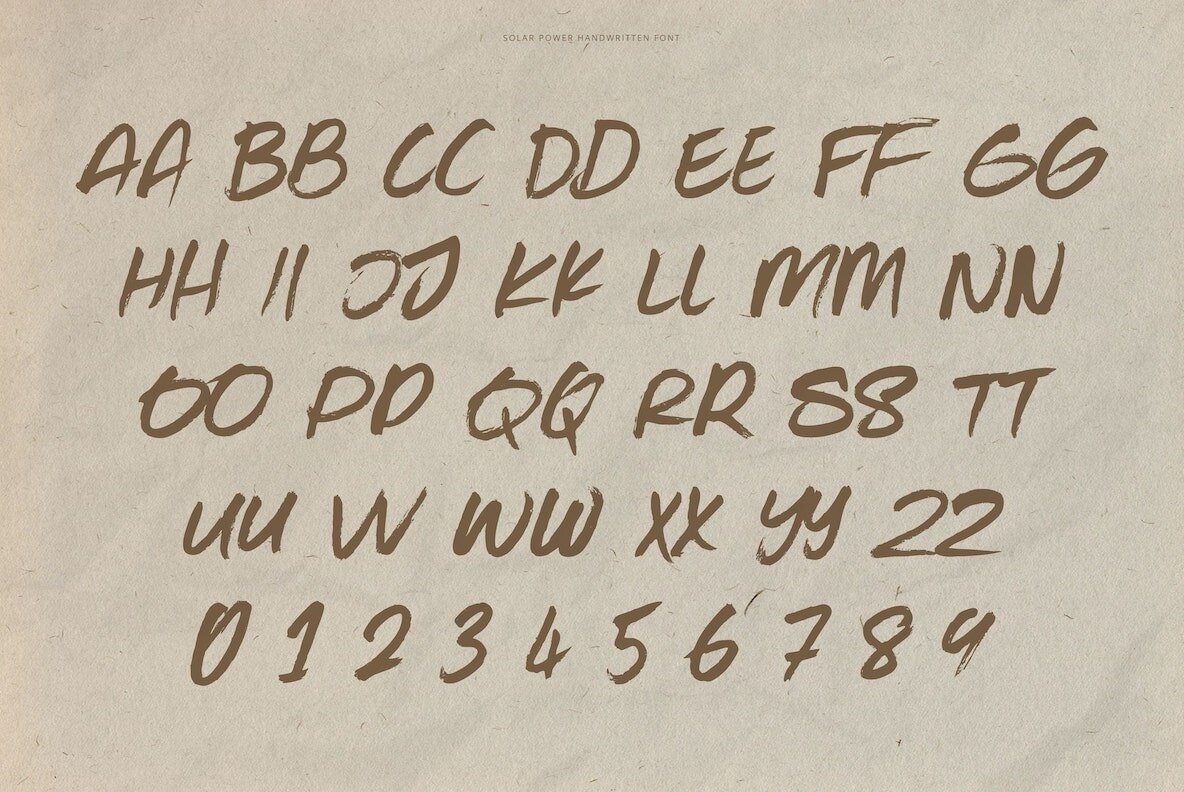 SOLAR POWER HANDWRITTEN FONT
AA BB CC DD EE FF GG
HH II JJ KK LL MM NN
OO PP QQ RR SS TT
UU VV WW XX YY ZZ
0 1 2 3 4 5 6 7 8 9